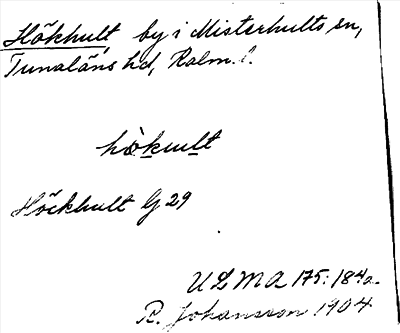 Hökhult, by i Misterhults sn,
Tunaläns hd, Kalm. l.
hò̱kult
Höckhult G 29
ULMA 175:184a.
R. Johansson 1904